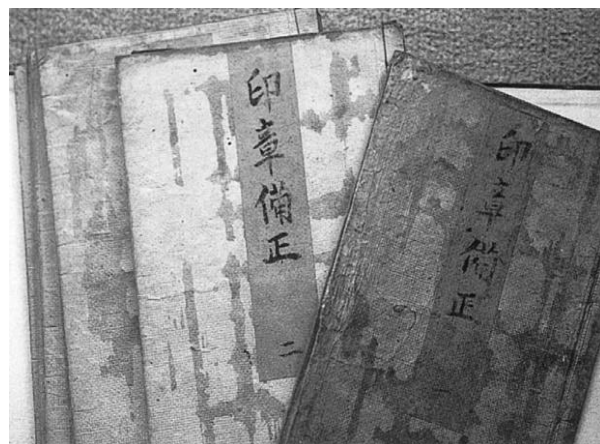 印章備正
二
印章備正